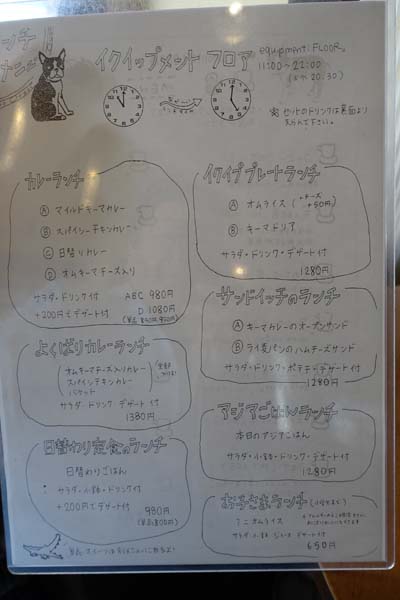 ランチ
イクイップメント フロア equipment:FLOOR。
11:00〜21:00
(L.O. 20:30)
☆ セットのドリンクは裏面より
えらんで下さい。
カレーランチ
Ⓐ マイルドキーマカレー
Ⓑ スパイシーチキンカレー
Ⓒ 日替りカレー
Ⓓ オムキーマチーズ入り
サラダ・ドリンク付 ABC 980円
+200円でデザート付 D 1080円
よくばりカレーランチ
オムキーマチーズ入りカレー
スパイシチキンカレー
バケット
サラダ・ドリンク デザート付
1380円
日替わり定食のランチ
日替わりごはん
サラダ・小鉢・ドリンク付
+200円でデザート付 980円
(単品800円)
イクイププレートランチ
Ⓐ オムライス (+チーズ +50円)
Ⓑ キーマドリア
サラダ・ドリンク・デザート付
1280円
サンドイッチのランチ
Ⓐ キーマカレーのオープンサンド
Ⓑ ライ麦パンのハムチーズサンド
サラダ・ドリンク・ポテト・デザート付
1280円
アジアごはんランチ
本日のアジアごはん
サラダ・小鉢・ドリンク・デザート付
1280円
お子さまランチ
ミニオムライス
サラダ 小鉢 ジュース デザート付
650円